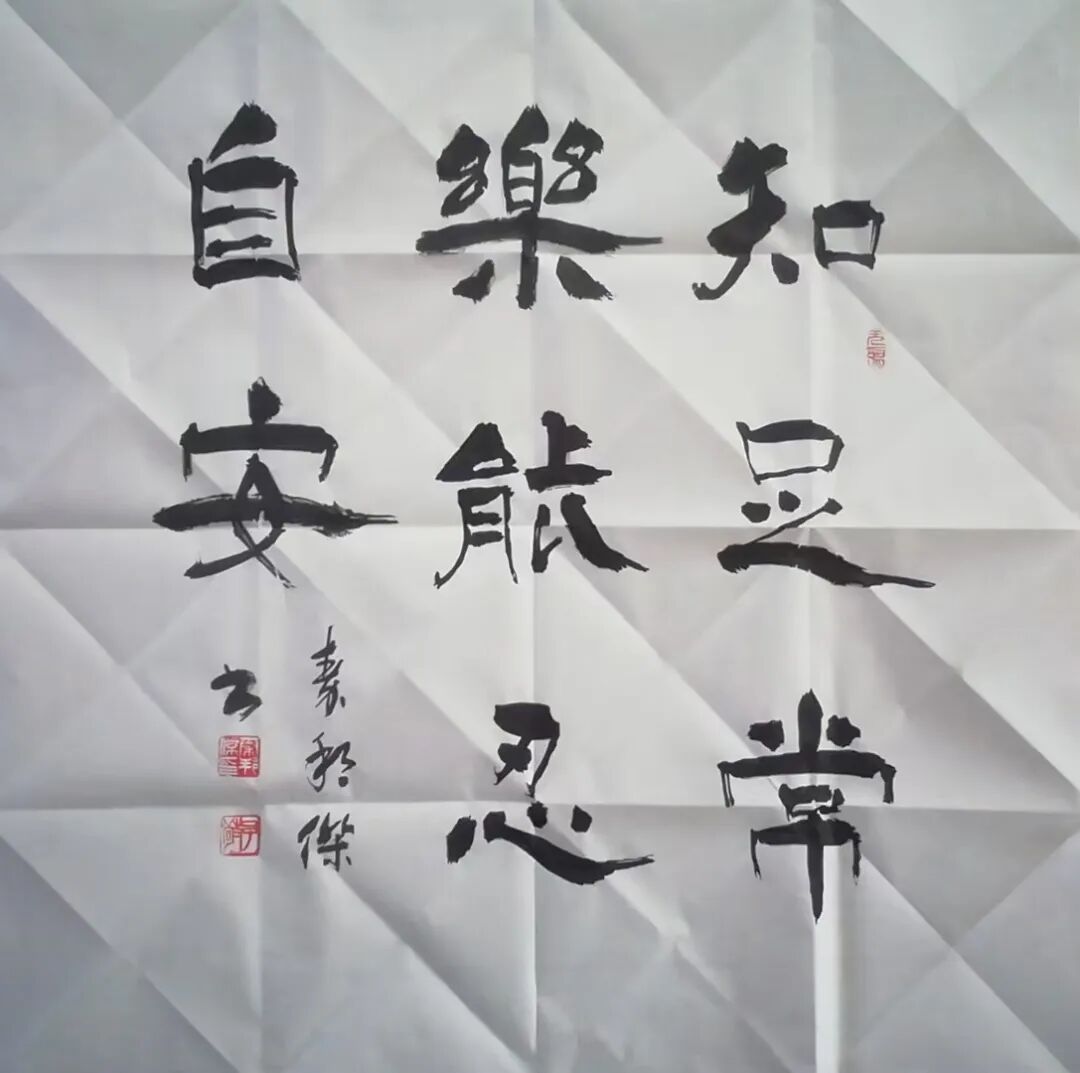 知足常
樂能忍
自安
秦邦傑
书